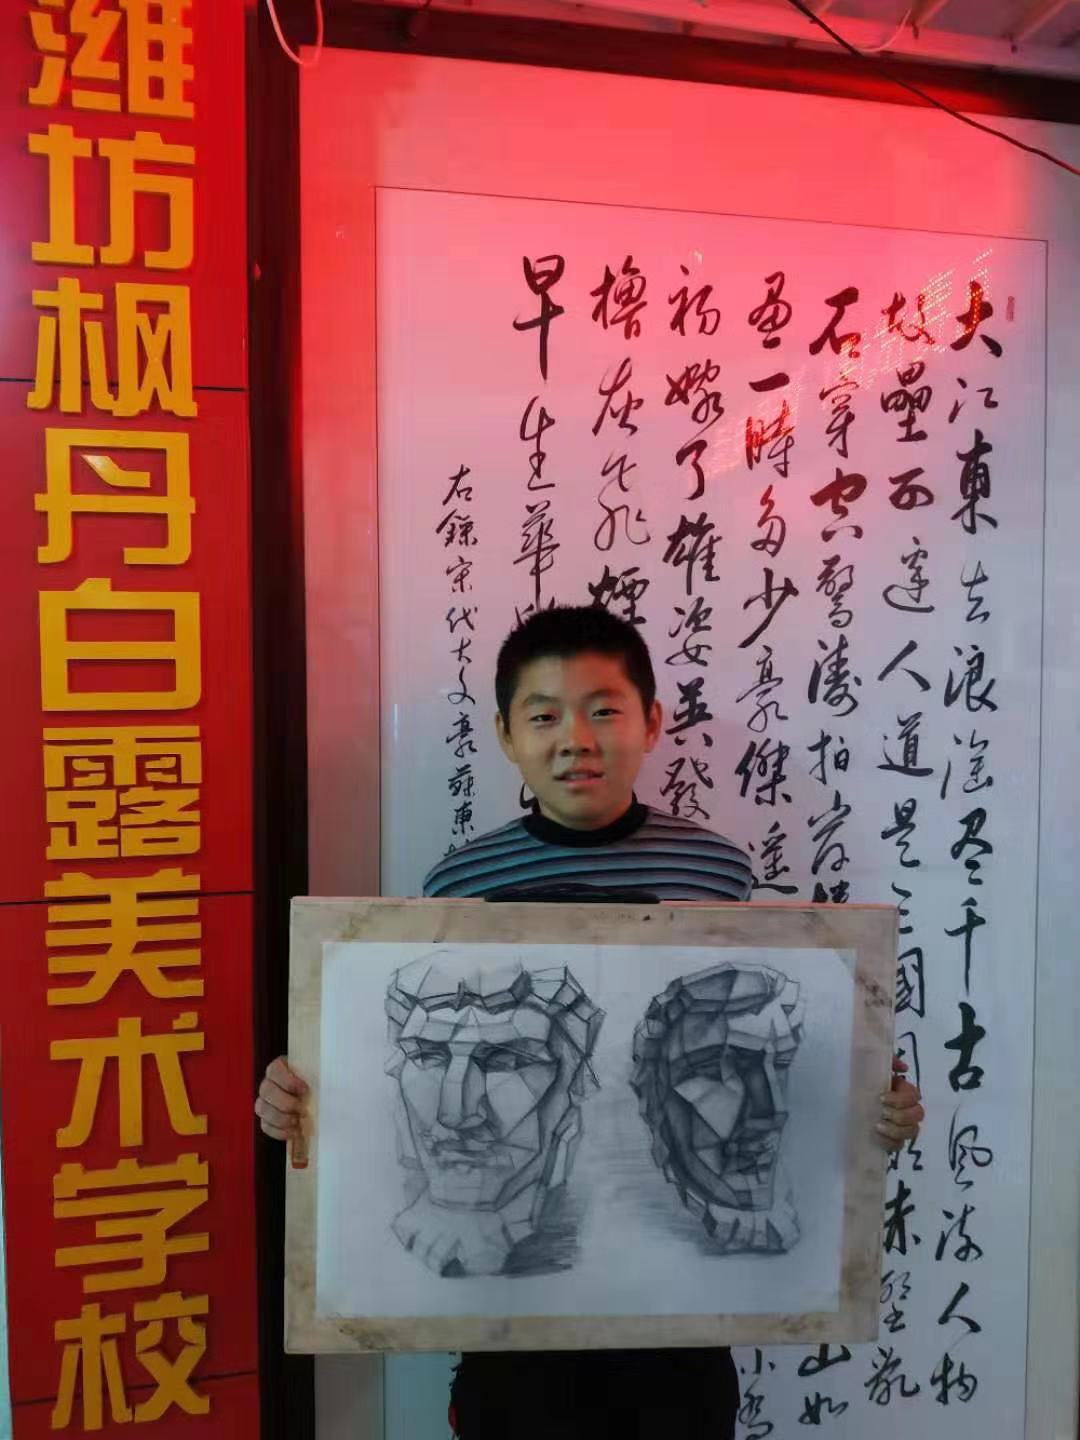 潍坊枫丹白露美术学校
大江東去浪淘尽千古風流人物
故壘西邊人道是三國周郎赤壁亂
石穿空驚濤拍岸捲 山如
畫一時多少豪傑遥 小喬
初嫁了雄姿英發
橹灰飛煙
早生華
右錄宋代大文豪蘇東